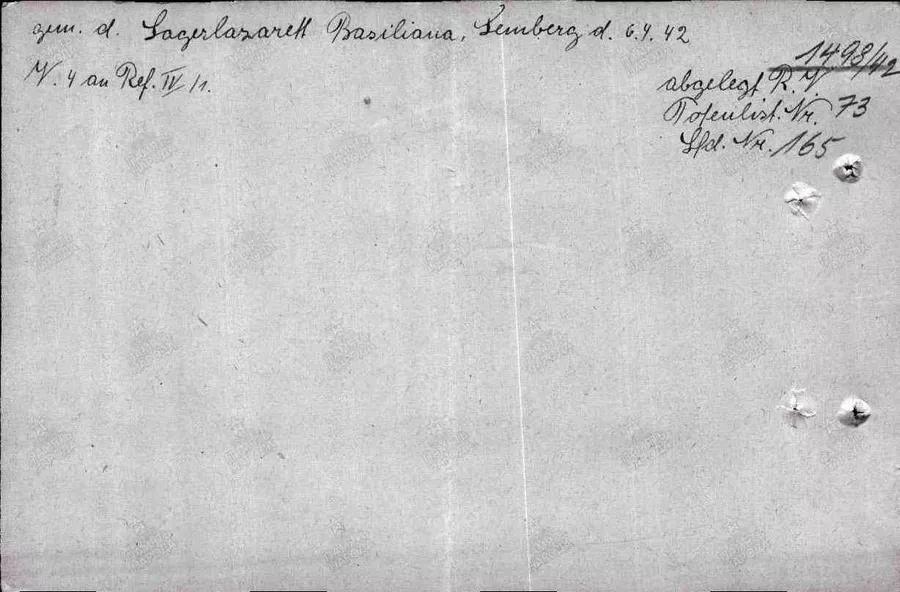 gem. d. Lagerlazarett Basiliana, Lemberg d. 6.4.42
V. 4 an Ref. IV/1.
1498/42
abgelegt R. V
Totenlist. Nr. 73
Lfd. Nr. 165